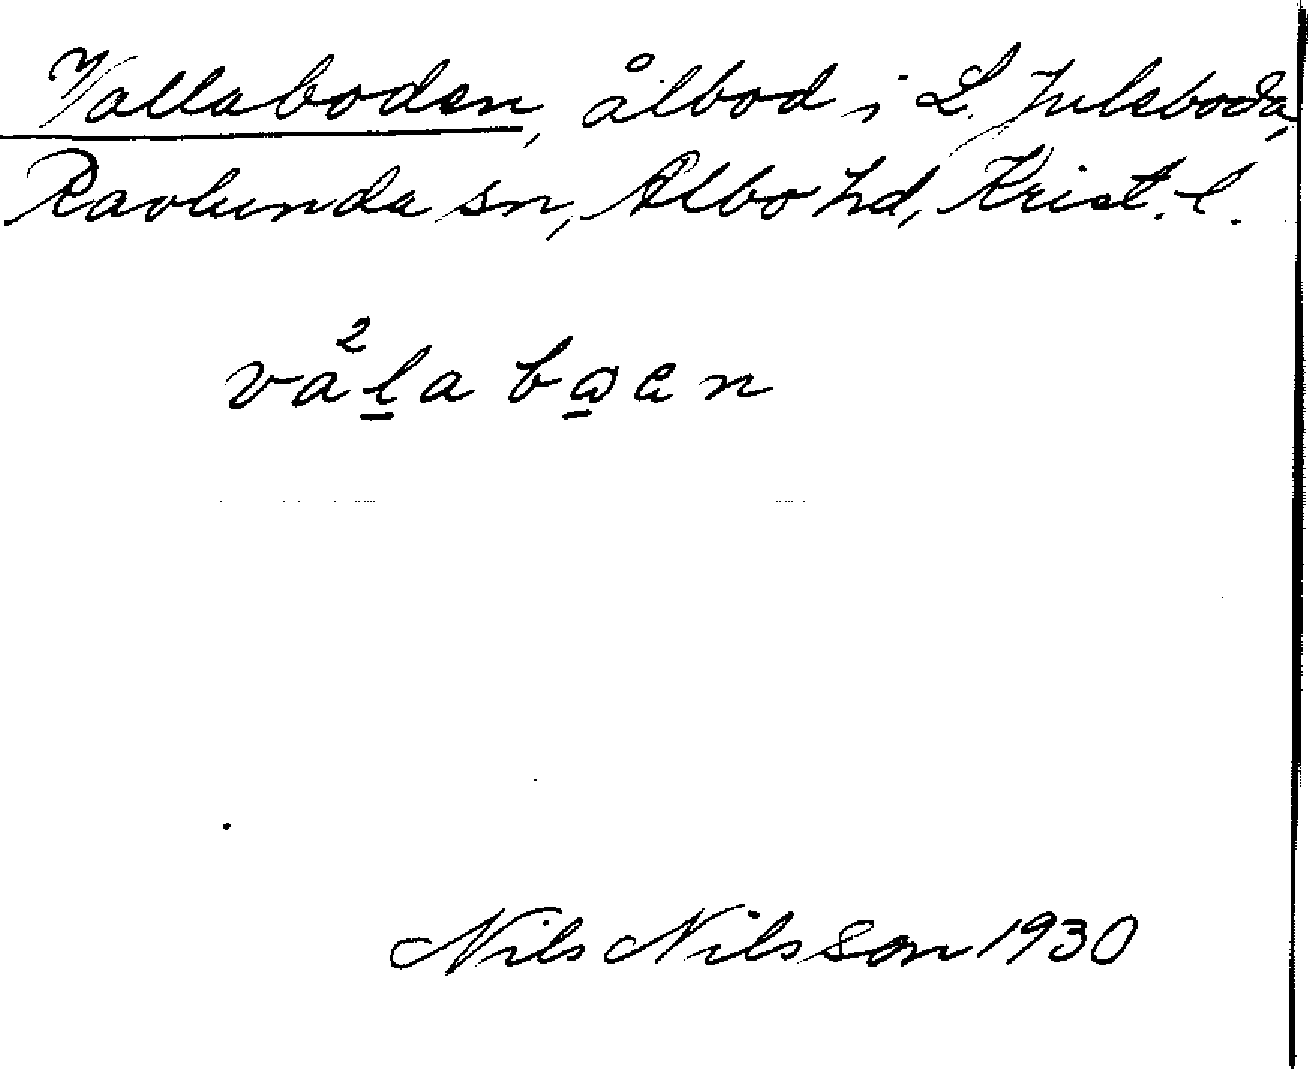 Vallaboden, ålbod i L. Juleboda,
Ravlunda sn, Albo hd, Krist. l.
va²l̲a bω̲en
Nils Nilsson 1930